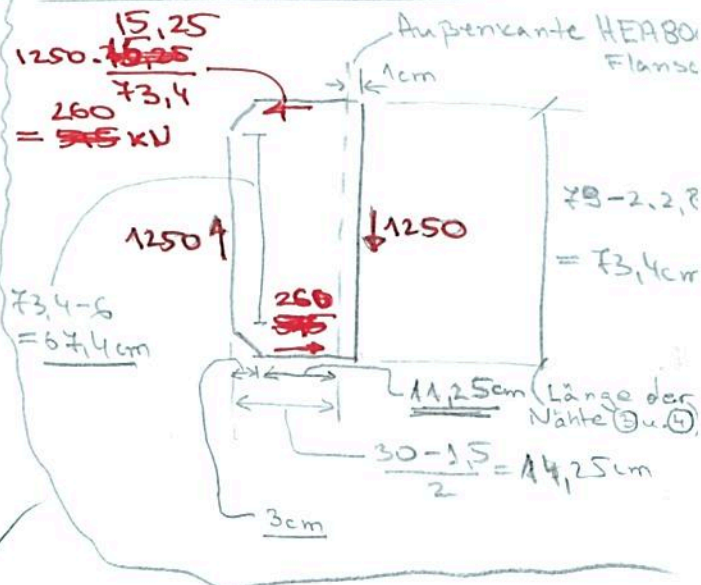 15,25
1250·
73,4
260
= kN
Außenkante HEA80
Flansc
1cm
79-2·2,8
= 73,4cm
1250
1250
73,4-6
= 67,4cm
260
11,25cm (Länge der
Nähte ③ u. ④)
30-1,5
2
= 14,25cm
3cm